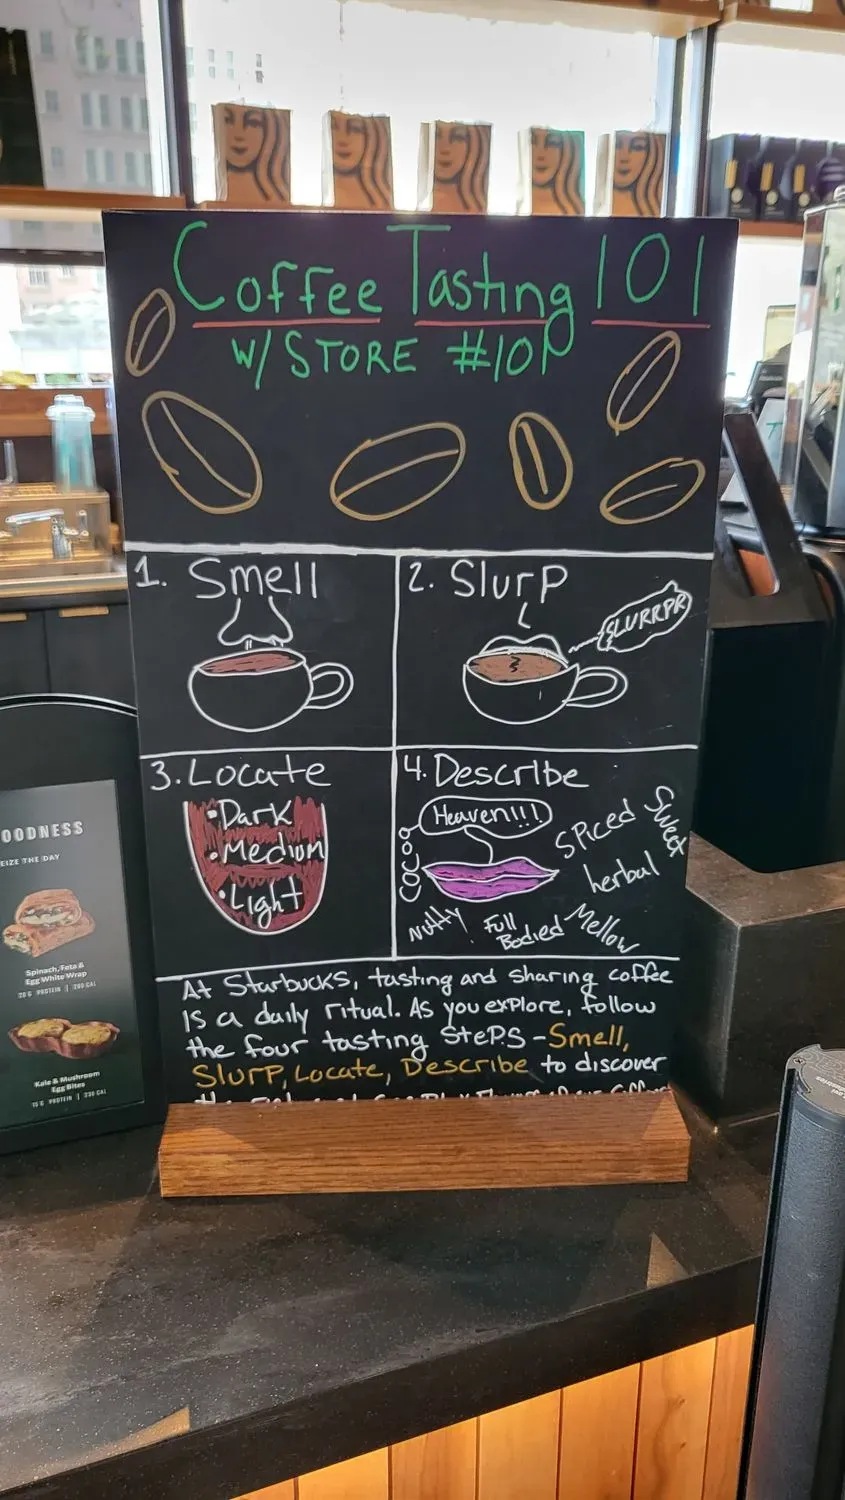 Coffee Tasting 101
W/ STORE #101
1. Smell
2. Slurp
SLURRPR
3. Locate
• Dark
• Medium
• Light
4. Describe
Heaven!!!
Cocoa
Spiced
Sweet
herbal
Nutty
Full
Bodied
Mellow
At Starbucks, tasting and sharing coffee
is a daily ritual. As you explore, follow
the four tasting steps - Smell,
Slurp, Locate, Describe to discover
OODNESS
EIZE THE DAY
Spinach, Feta &
Egg White Wrap
20 G PROTEIN | 290 CAL
Kale & Mushroom
Egg Bites
15 G PROTEIN | 230 CAL